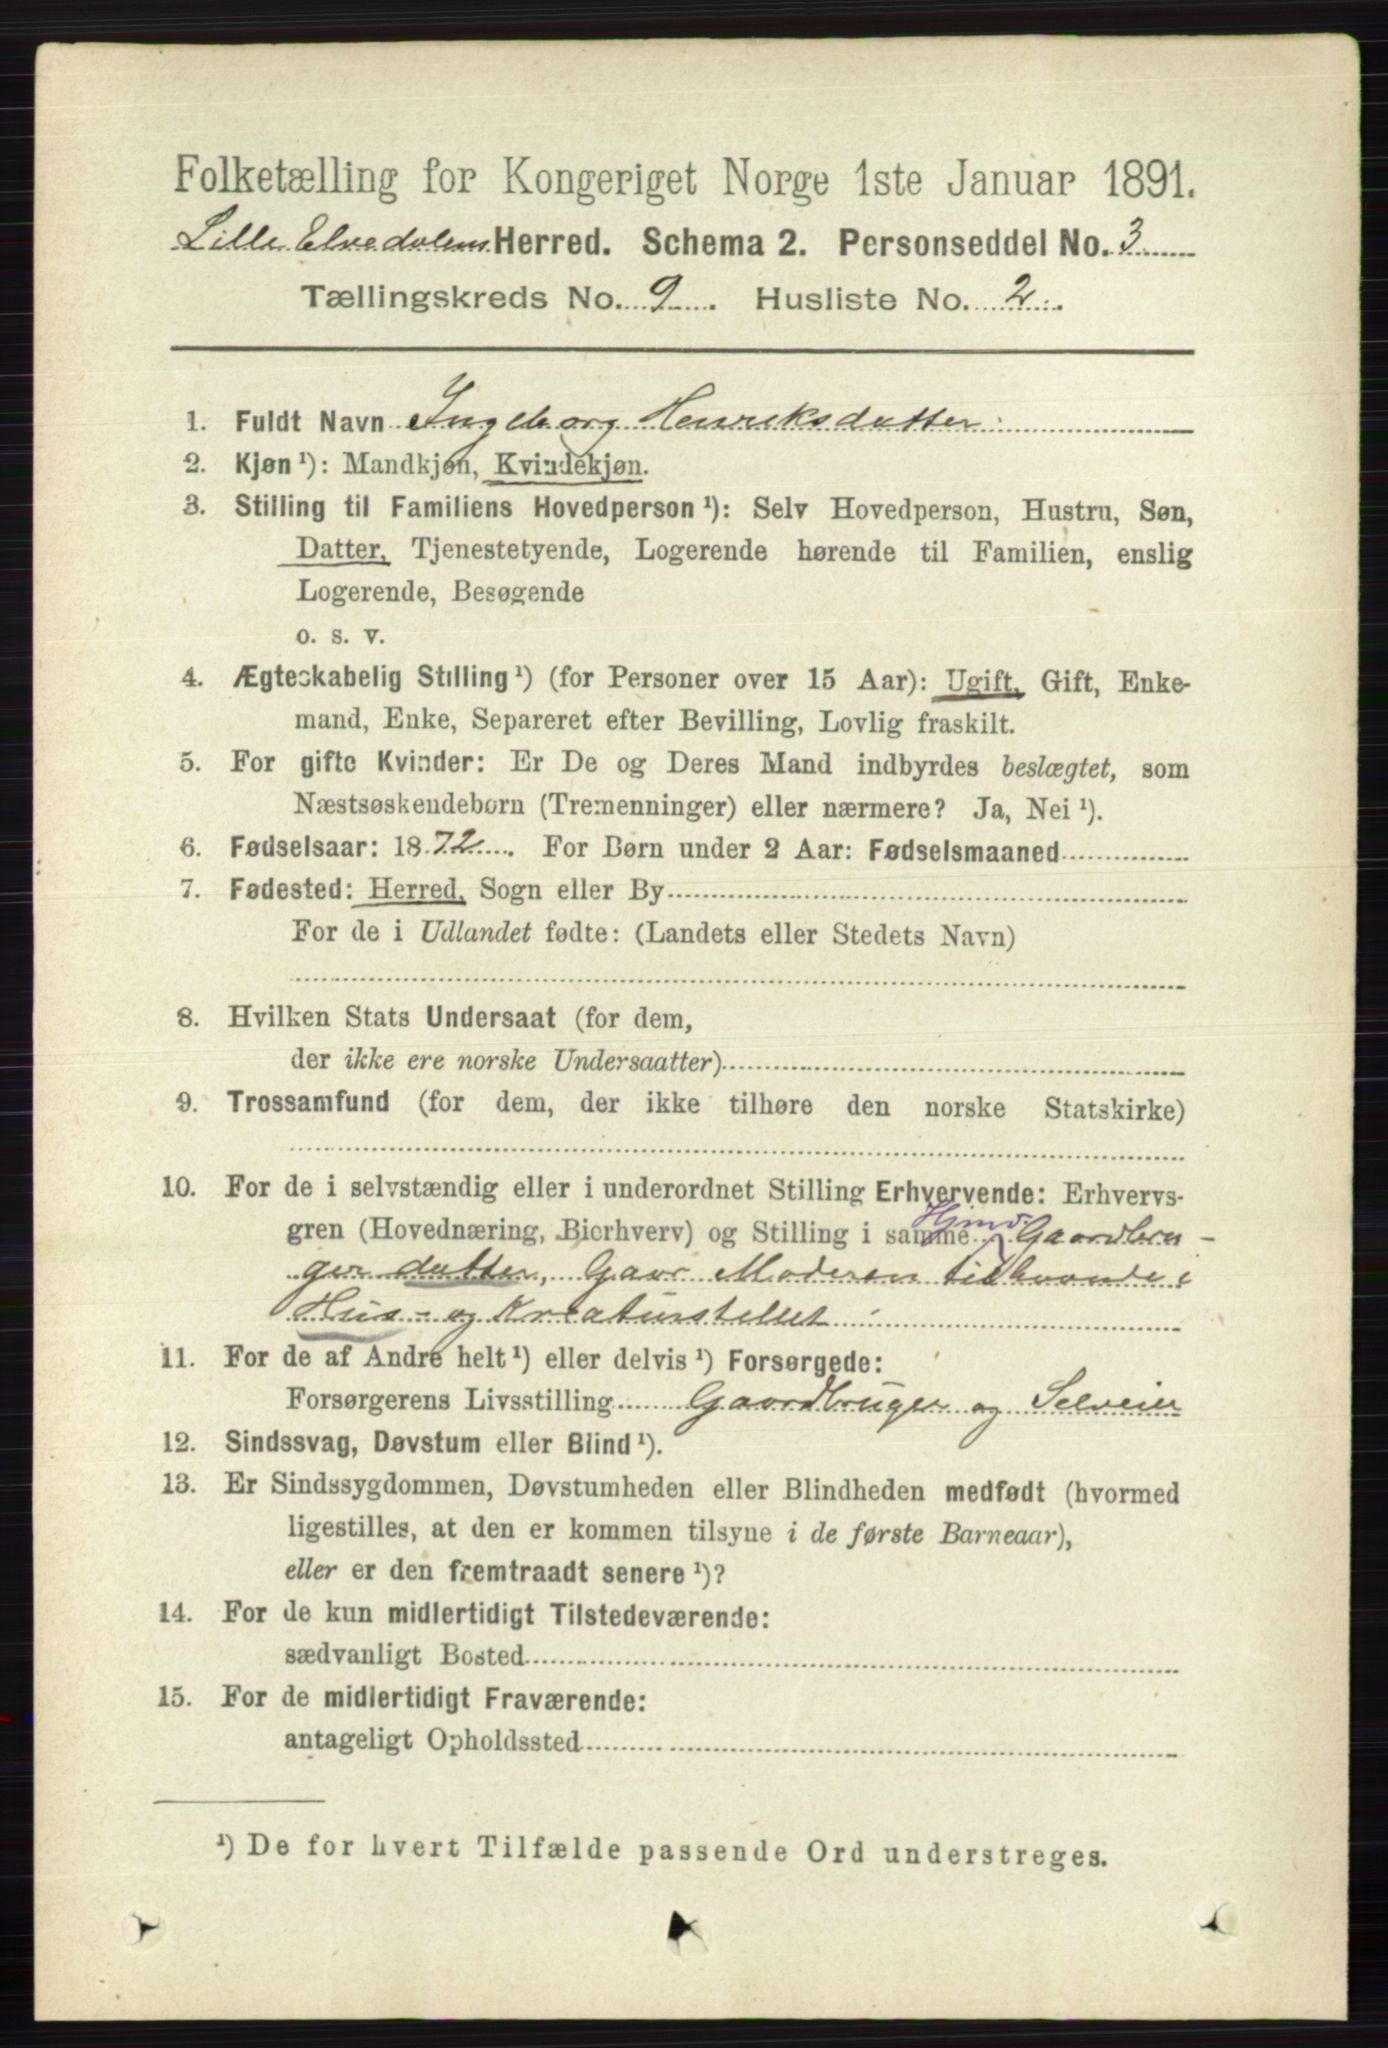 Folketælling for Kongeriget Norge 1ste Januar 1891.
Lille Elvedalens Herred. Schema 2. Personseddel No. 3
Tællingskreds No. 9. Husliste No. 2.
1. Fuldt Navn Ingeborg Henriksdatter
2. Kjøn ¹): Mandkjøn, Kvindekjøn.
3. Stilling til Familiens Hovedperson ¹): Selv Hovedperson, Hustru, Søn,
Datter, Tjenestetyende, Logerende hørende til Familien, enslig
Logerende, Besøgende
o. s. v.
4. Ægteskabelig Stilling ¹) (for Personer over 15 Aar): Ugift, Gift, Enke-
mand, Enke, Separeret efter Bevilling, Lovlig fraskilt.
5. For gifte Kvinder: Er De og Deres Mand indbyrdes beslægtet, som
Næstsøskendebørn (Tremenninger) eller nærmere? Ja, Nei ¹).
6. Fødselsaar: 1872. For Børn under 2 Aar: Fødselsmaaned
7. Fødested: Herred, Sogn eller By
For de i Udlandet fødte: (Landets eller Stedets Navn)
8. Hvilken Stats Undersaat (for dem,
der ikke ere norske Undersaatter)
9. Trossamfund (for dem, der ikke tilhøre den norske Statskirke)
10. For de i selvstændig eller i underordnet Stilling Erhvervende: Erhvervs-
gren (Hovednæring, Bierhverv) og Stilling i samme Gaardbru-
gerdatter, Gaar Moderen tilhaande i
Hus- og Kreaturstellet
11. For de af Andre helt ¹) eller delvis ¹) Forsørgede:
Forsørgerens Livsstilling Gaardbruger og Selveier
12. Sindssvag, Døvstum eller Blind ¹).
13. Er Sindssygdommen, Døvstumheden eller Blindheden medfødt (hvormed
ligestilles, at den er kommen tilsyne i de første Barneaar),
eller er den fremtraadt senere ¹)?
14. For de kun midlertidigt Tilstedeværende:
sædvanligt Bosted
15. For de midlertidigt Fraværende:
antageligt Opholdssted
¹) De for hvert Tilfælde passende Ord understreges.